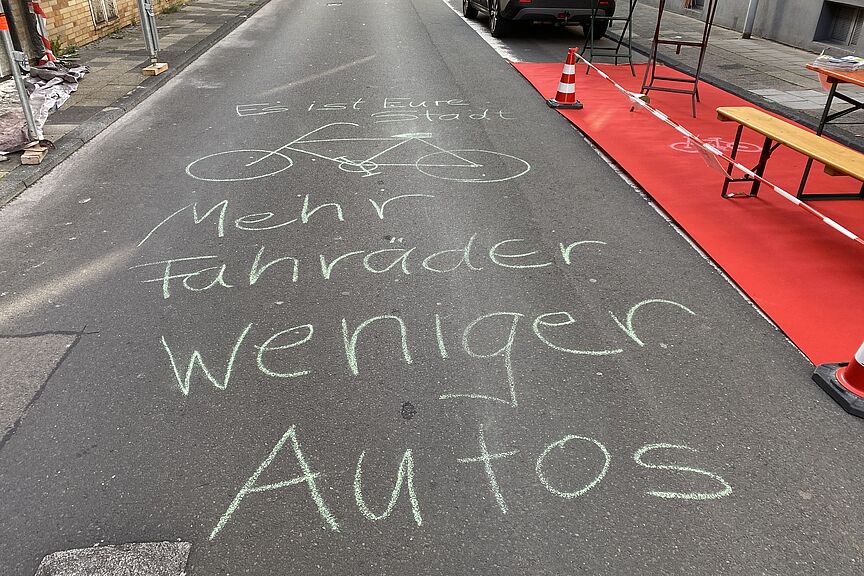 Es ist Eure
Stadt
Mehr
Fahräder
weniger
Autos